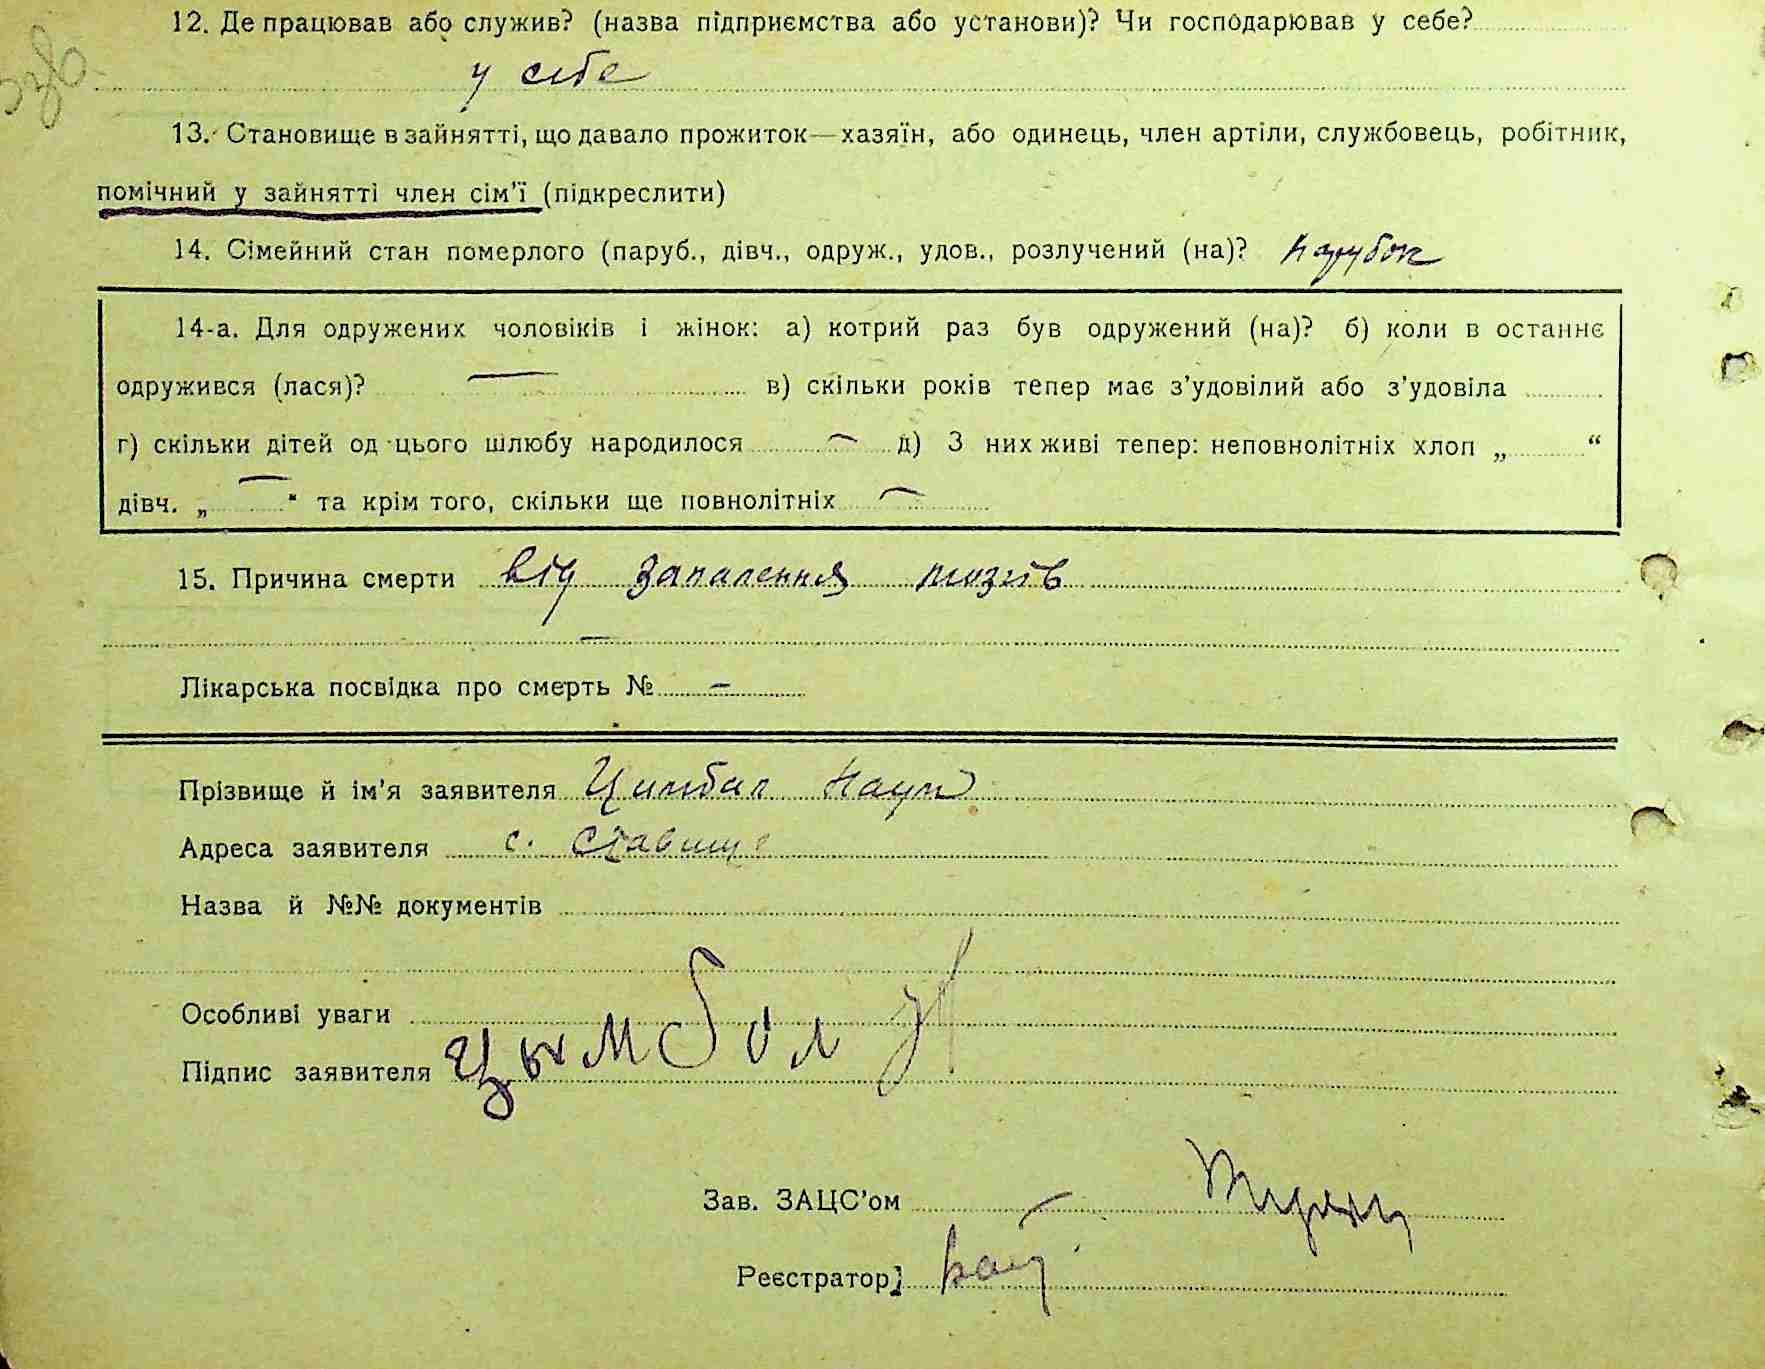 12. Де працював або служив? (назва підприємства або установи)? Чи господарював у себе?
у себе
13. Становище в зайнятті, що давало прожиток—хазяїн, або одинець, член артіли, службовець, робітник,
помічний у зайнятті член сім'ї (підкреслити)
14. Сімейний стан померлого (паруб., дівч., одруж., удов., розлучений (на)? парубок
14-а. Для одружених чоловіків і жінок: а) котрий раз був одружений (на)? б) коли в останнє
одружився (лася)? — в) скільки років тепер має з'удовілий або з'удовіла
г) скільки дітей од цього шлюбу народилося — д) З них живі тепер: неповнолітніх хлоп „ “
дівч. „ — “ та крім того, скільки ще повнолітніх —
15. Причина смерти від запалення мозгів
—
Лікарська посвідка про смерть № —
Прізвище й ім'я заявителя Цимбал Наум
Адреса заявителя с. Ставище
Назва й №№ документів
Особливі уваги
Підпис заявителя Цымбал
Зав. ЗАЦС'ом
Реєстратор